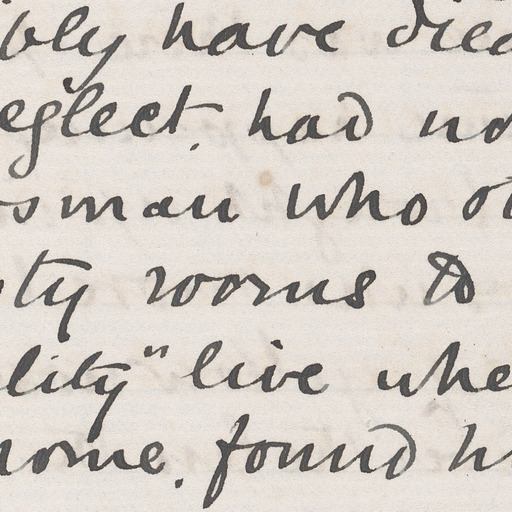 ibly have died
eglect, had no
sman who o
ty rooms to
lity" live whe
home, found h